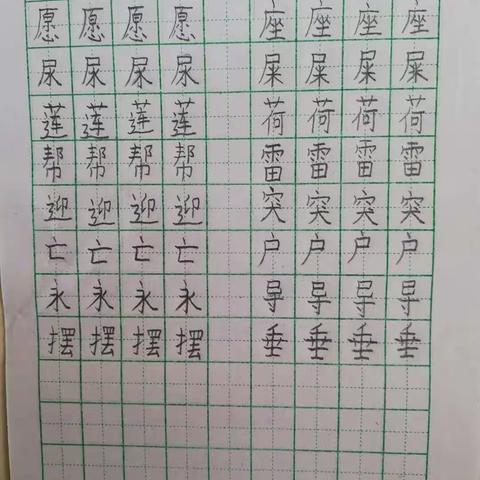 愿愿愿愿 座座座座
尿尿尿尿 屎屎屎屎
莲莲莲莲 荷荷荷荷
帮帮帮帮 雷雷雷雷
迎迎迎迎 突突突突
亡亡亡亡 户户户户
永永永永 导导导导
摆摆摆摆 垂垂垂垂